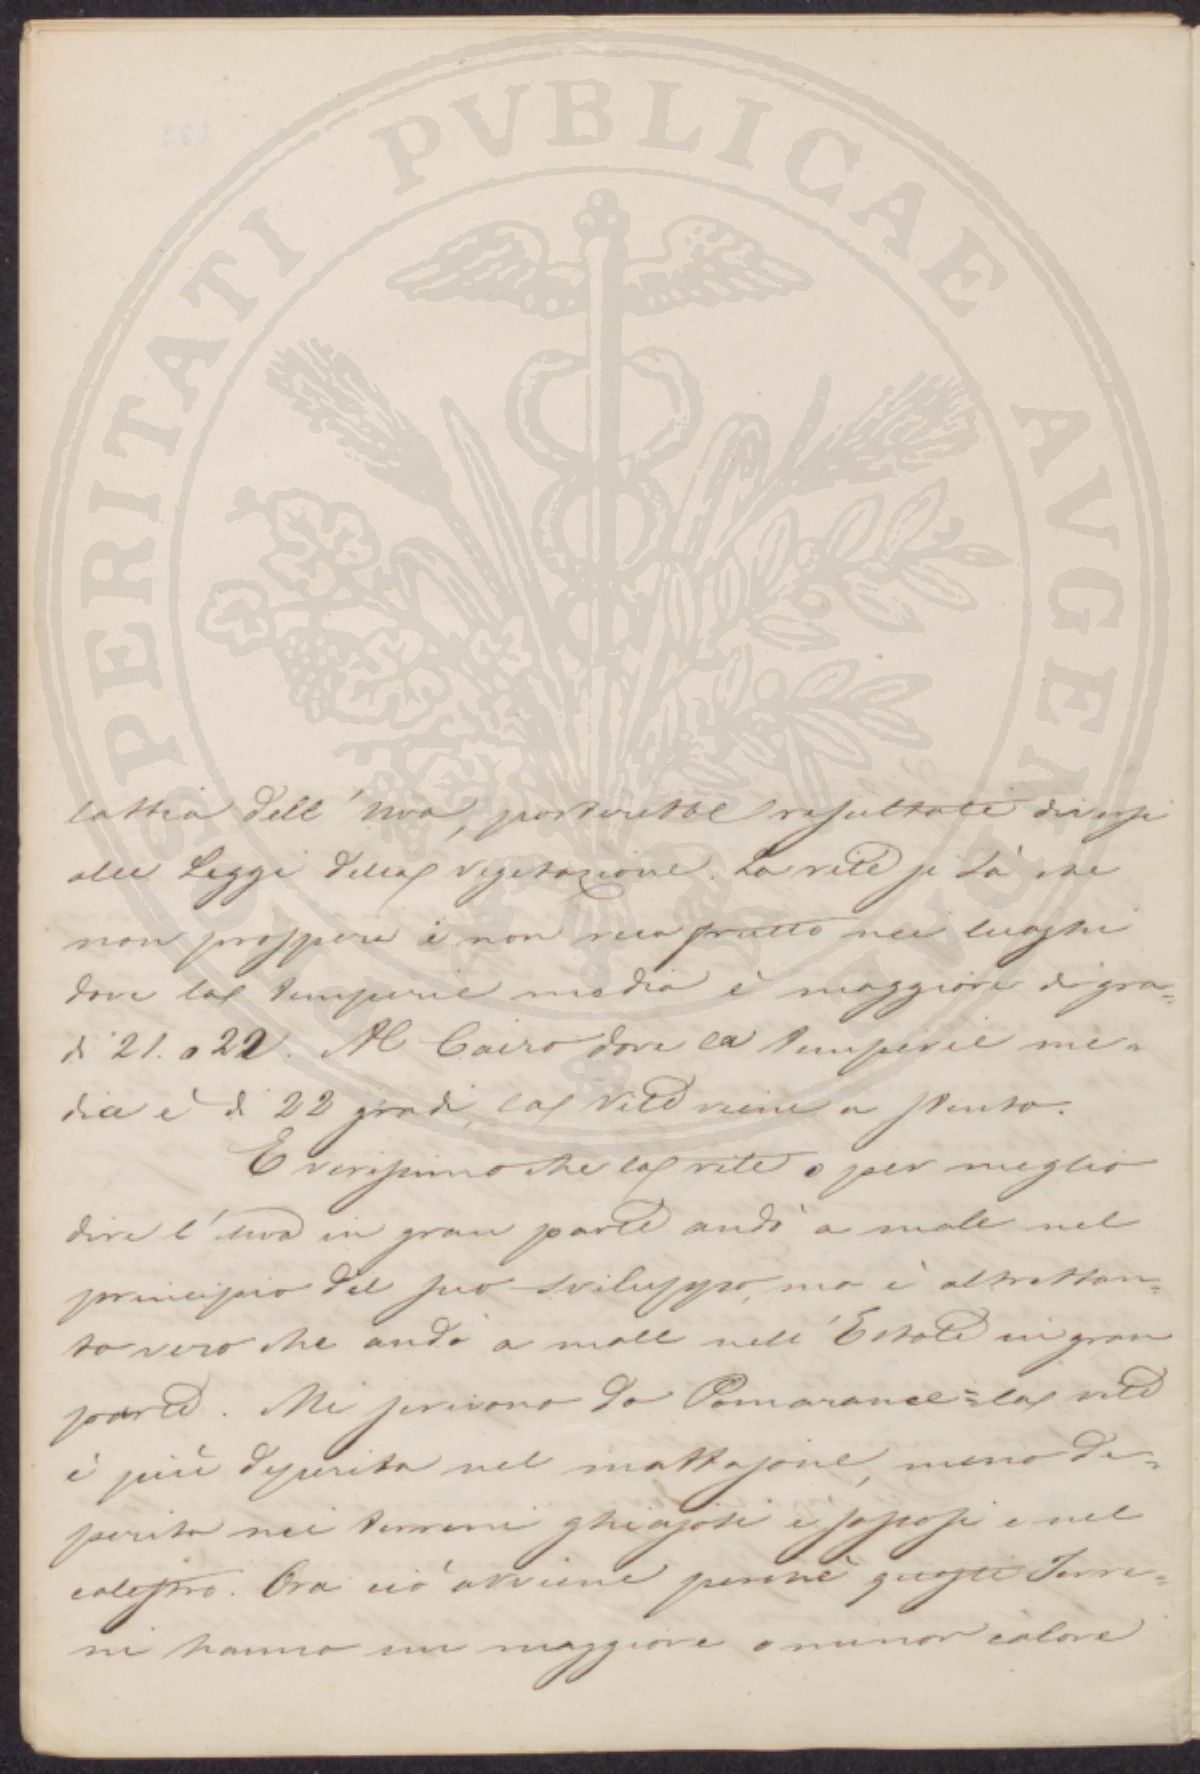 PROSPERITATI PVBLICAE AVGENDAE
lattia dell'uva, porterebbe resultati diversi
alle Leggi della vegetazione. La vite si sà che
non prospera e non reca frutto nei luoghi
dove la temperie media è maggiore di gra=
di 21. o 22. Al Cairo dove la temperie me=
dia è di 22 gradi, la vite viene a stento.
E verissimo che la vite o per meglio
dire l'uva in gran parte andò a male nel
principio del suo sviluppo, ma è altrettan=
to vero che andò a male nell'Estate in gran
parte. Mi scrivono da Pomarance = la vite
è più deperita nel mattajone, meno de=
perita nei terreni ghiajosi e sassosi e nel
calestro. Ora ciò avviene perchè questi Terre=
ni hanno un maggiore o minor calore